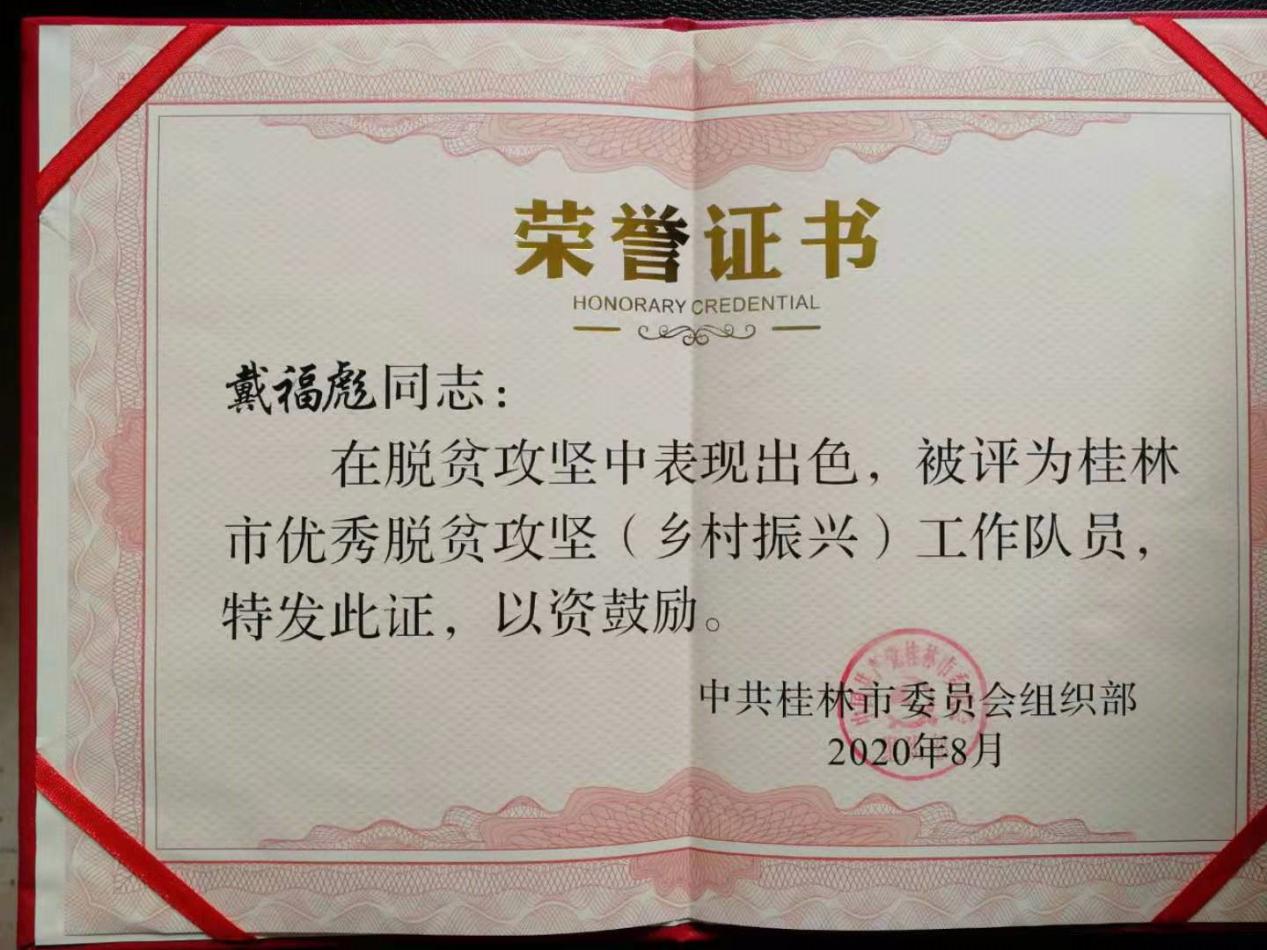 荣誉证书
HONORARY CREDENTIAL
戴福彪同志：
在脱贫攻坚中表现出色，被评为桂林
市优秀脱贫攻坚（乡村振兴）工作队员，
特发此证，以资鼓励。
中共桂林市委员会组织部
2020年8月